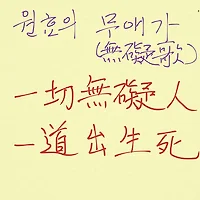 원효의 무애가
(無礙歌)
一切無礙人
一道出生死